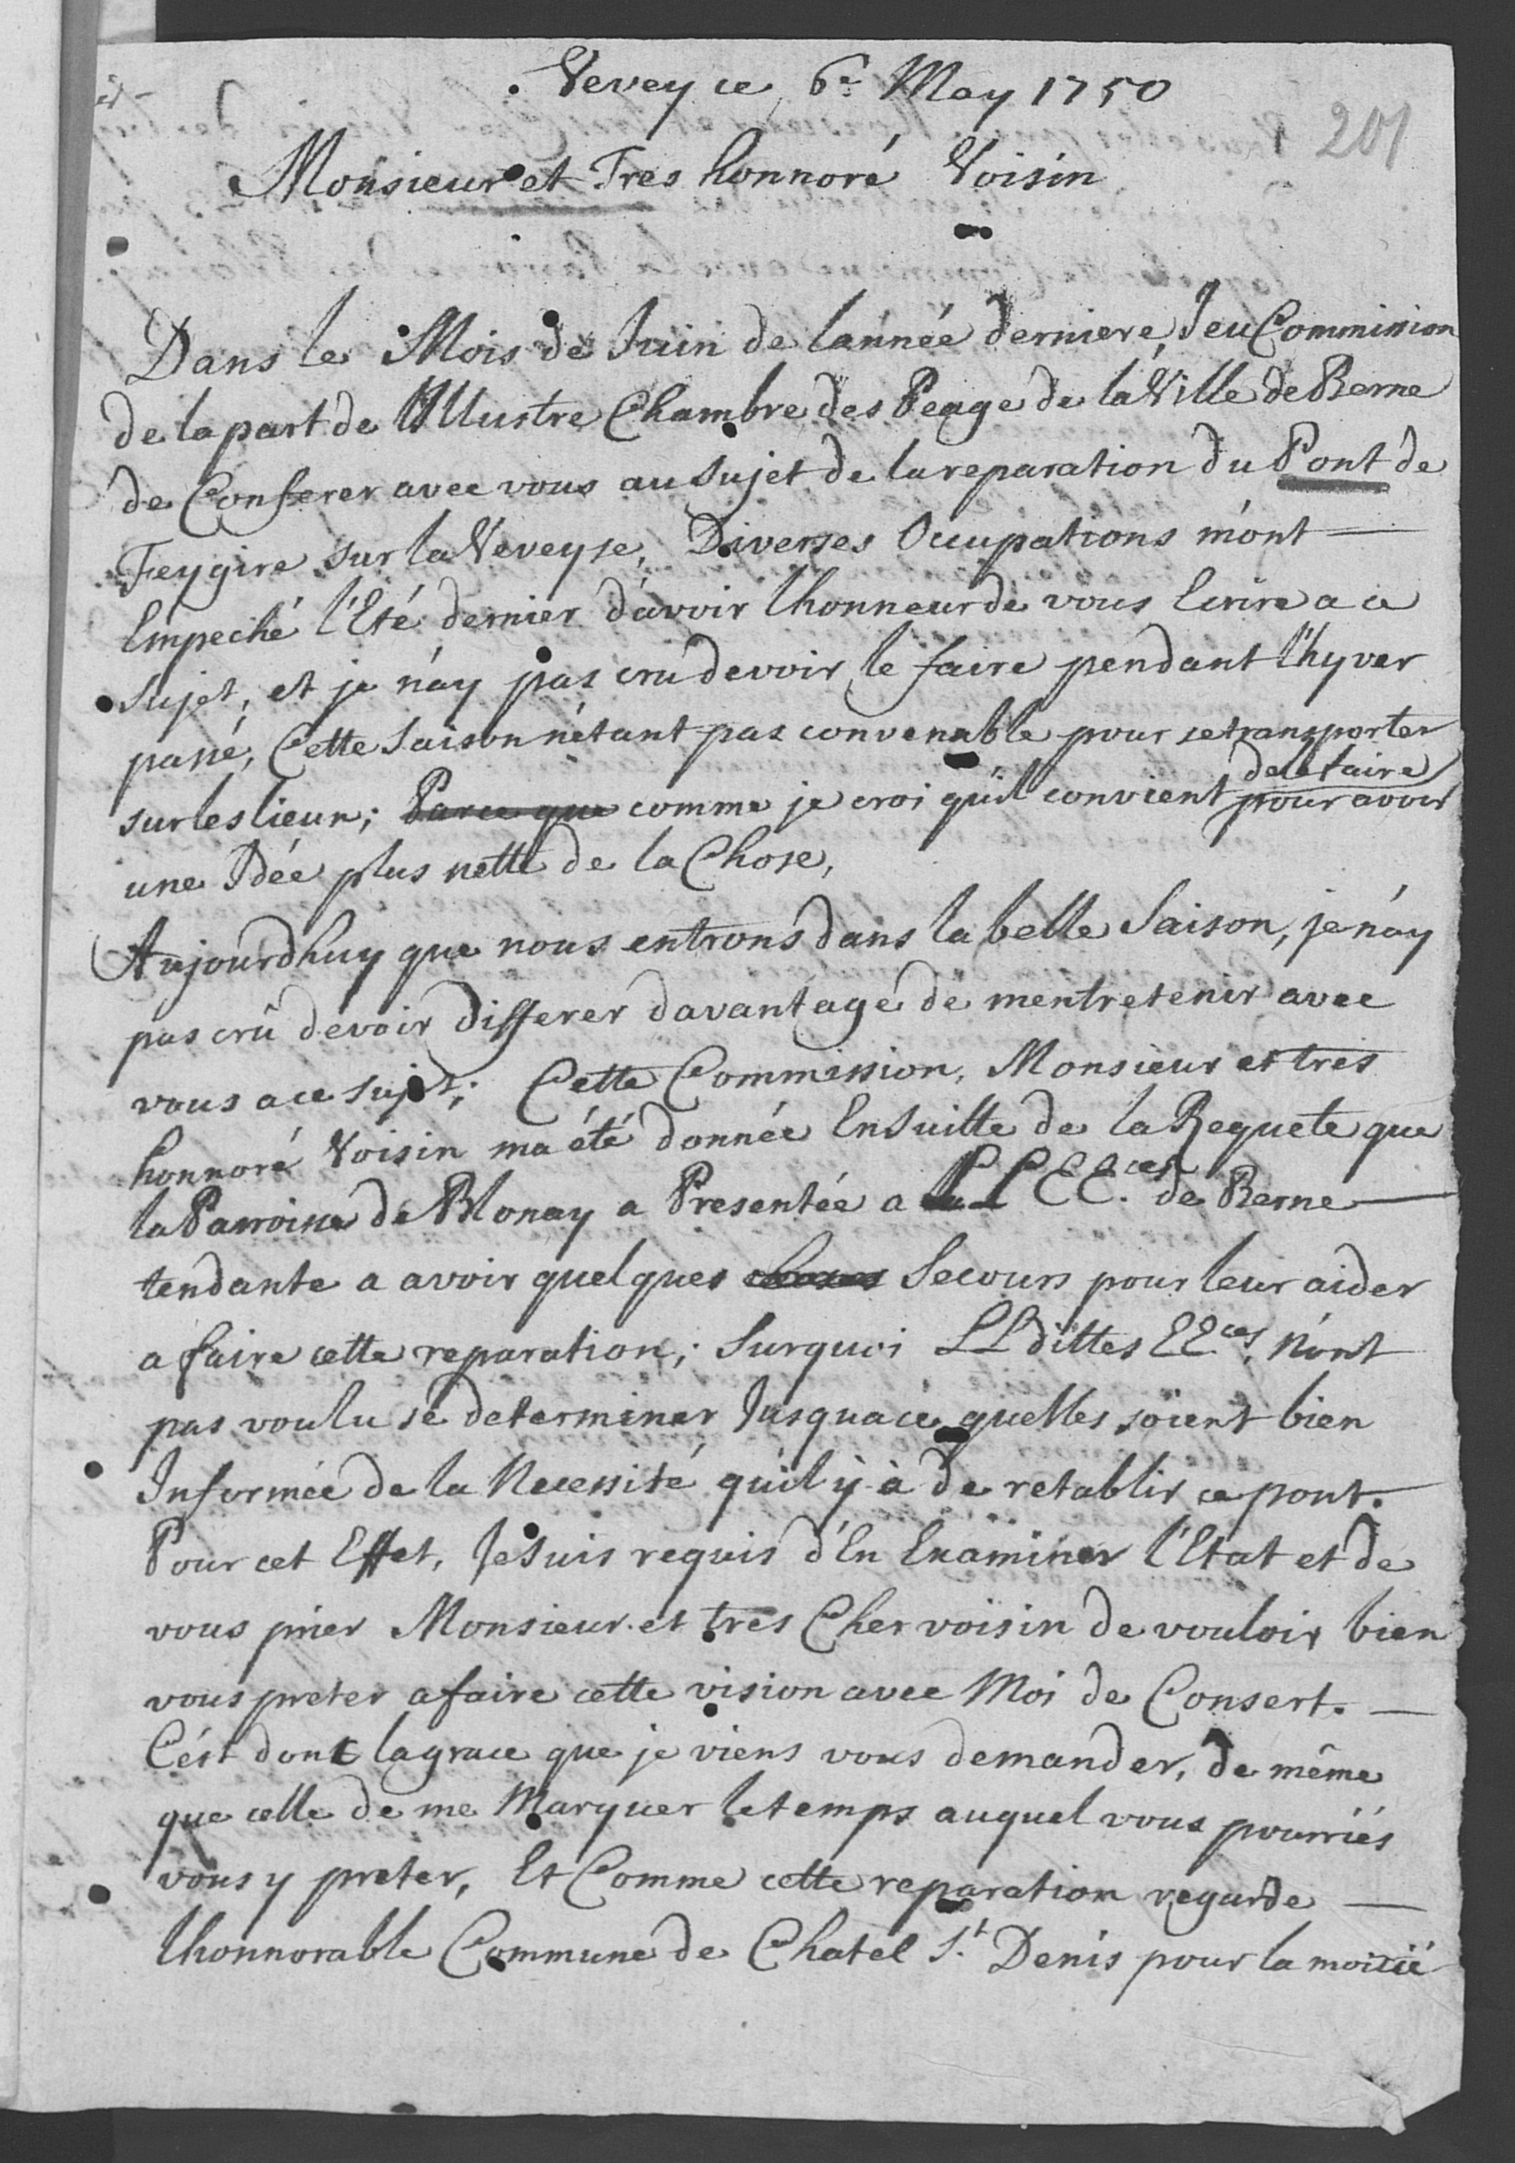 Vevey ce 6e May 1750
201
Monsieur et Tres honnoré Voisin
Dans le Mois de Juin de lannée derniere, Jeu Commission
de la part de l'Illustre Chambre des Peage de la Ville de Berne
de Conferer avec vous au sujet de la reparation du Pont de
Feygire sur la Veveyse, Diverses Occupations m'ont
Empeché l'Eté dernier d'avoir lhonneur de vous Ecrire a ce
sujet, et je n'ay pas crû devoir le faire pendant l'hyver
passé, Cette Saison n'étant pas convenable pour se transporter
de le faire
sur les lieux; Parce que comme je croi quil convient pour avoir
une Idée plus nette de la Chose,
Aujourdhuy que nous entrons dans la belle Saison, je n'ay
pas crû devoir differer davantage de mentretenir avec
vous a ce sujet; Cette Commission, Monsieur et tres
honnoré Voisin ma été donnée Ensuitte de la Requete que
la Parroisse de Blonay a Presentée a LL EE.ces de Berne
tendante a avoir quelques choses Secours pour leur aider
a faire cette reparation; Surquoi LLdittes EE.ces, n'ont
pas voulu se determiner Jusquace quelles soient bien
Informée de la Necessité quil y à de retablir ce pont.
Pour cet Effet, Je suis requis d'En Examiner l'Etat et de
vous prier Monsieur et tres Cher voisin de vouloir bien
vous preter a faire cette vision avec Moi de Consert.
C'ést dont la grace que je viens vous demander, de même
que celle de me Marquer le temps auquel vous pourriés
vous y preter, Et Comme cette reparation regarde
lhonnorable Commune de Chatel S.t Denis pour la moitié